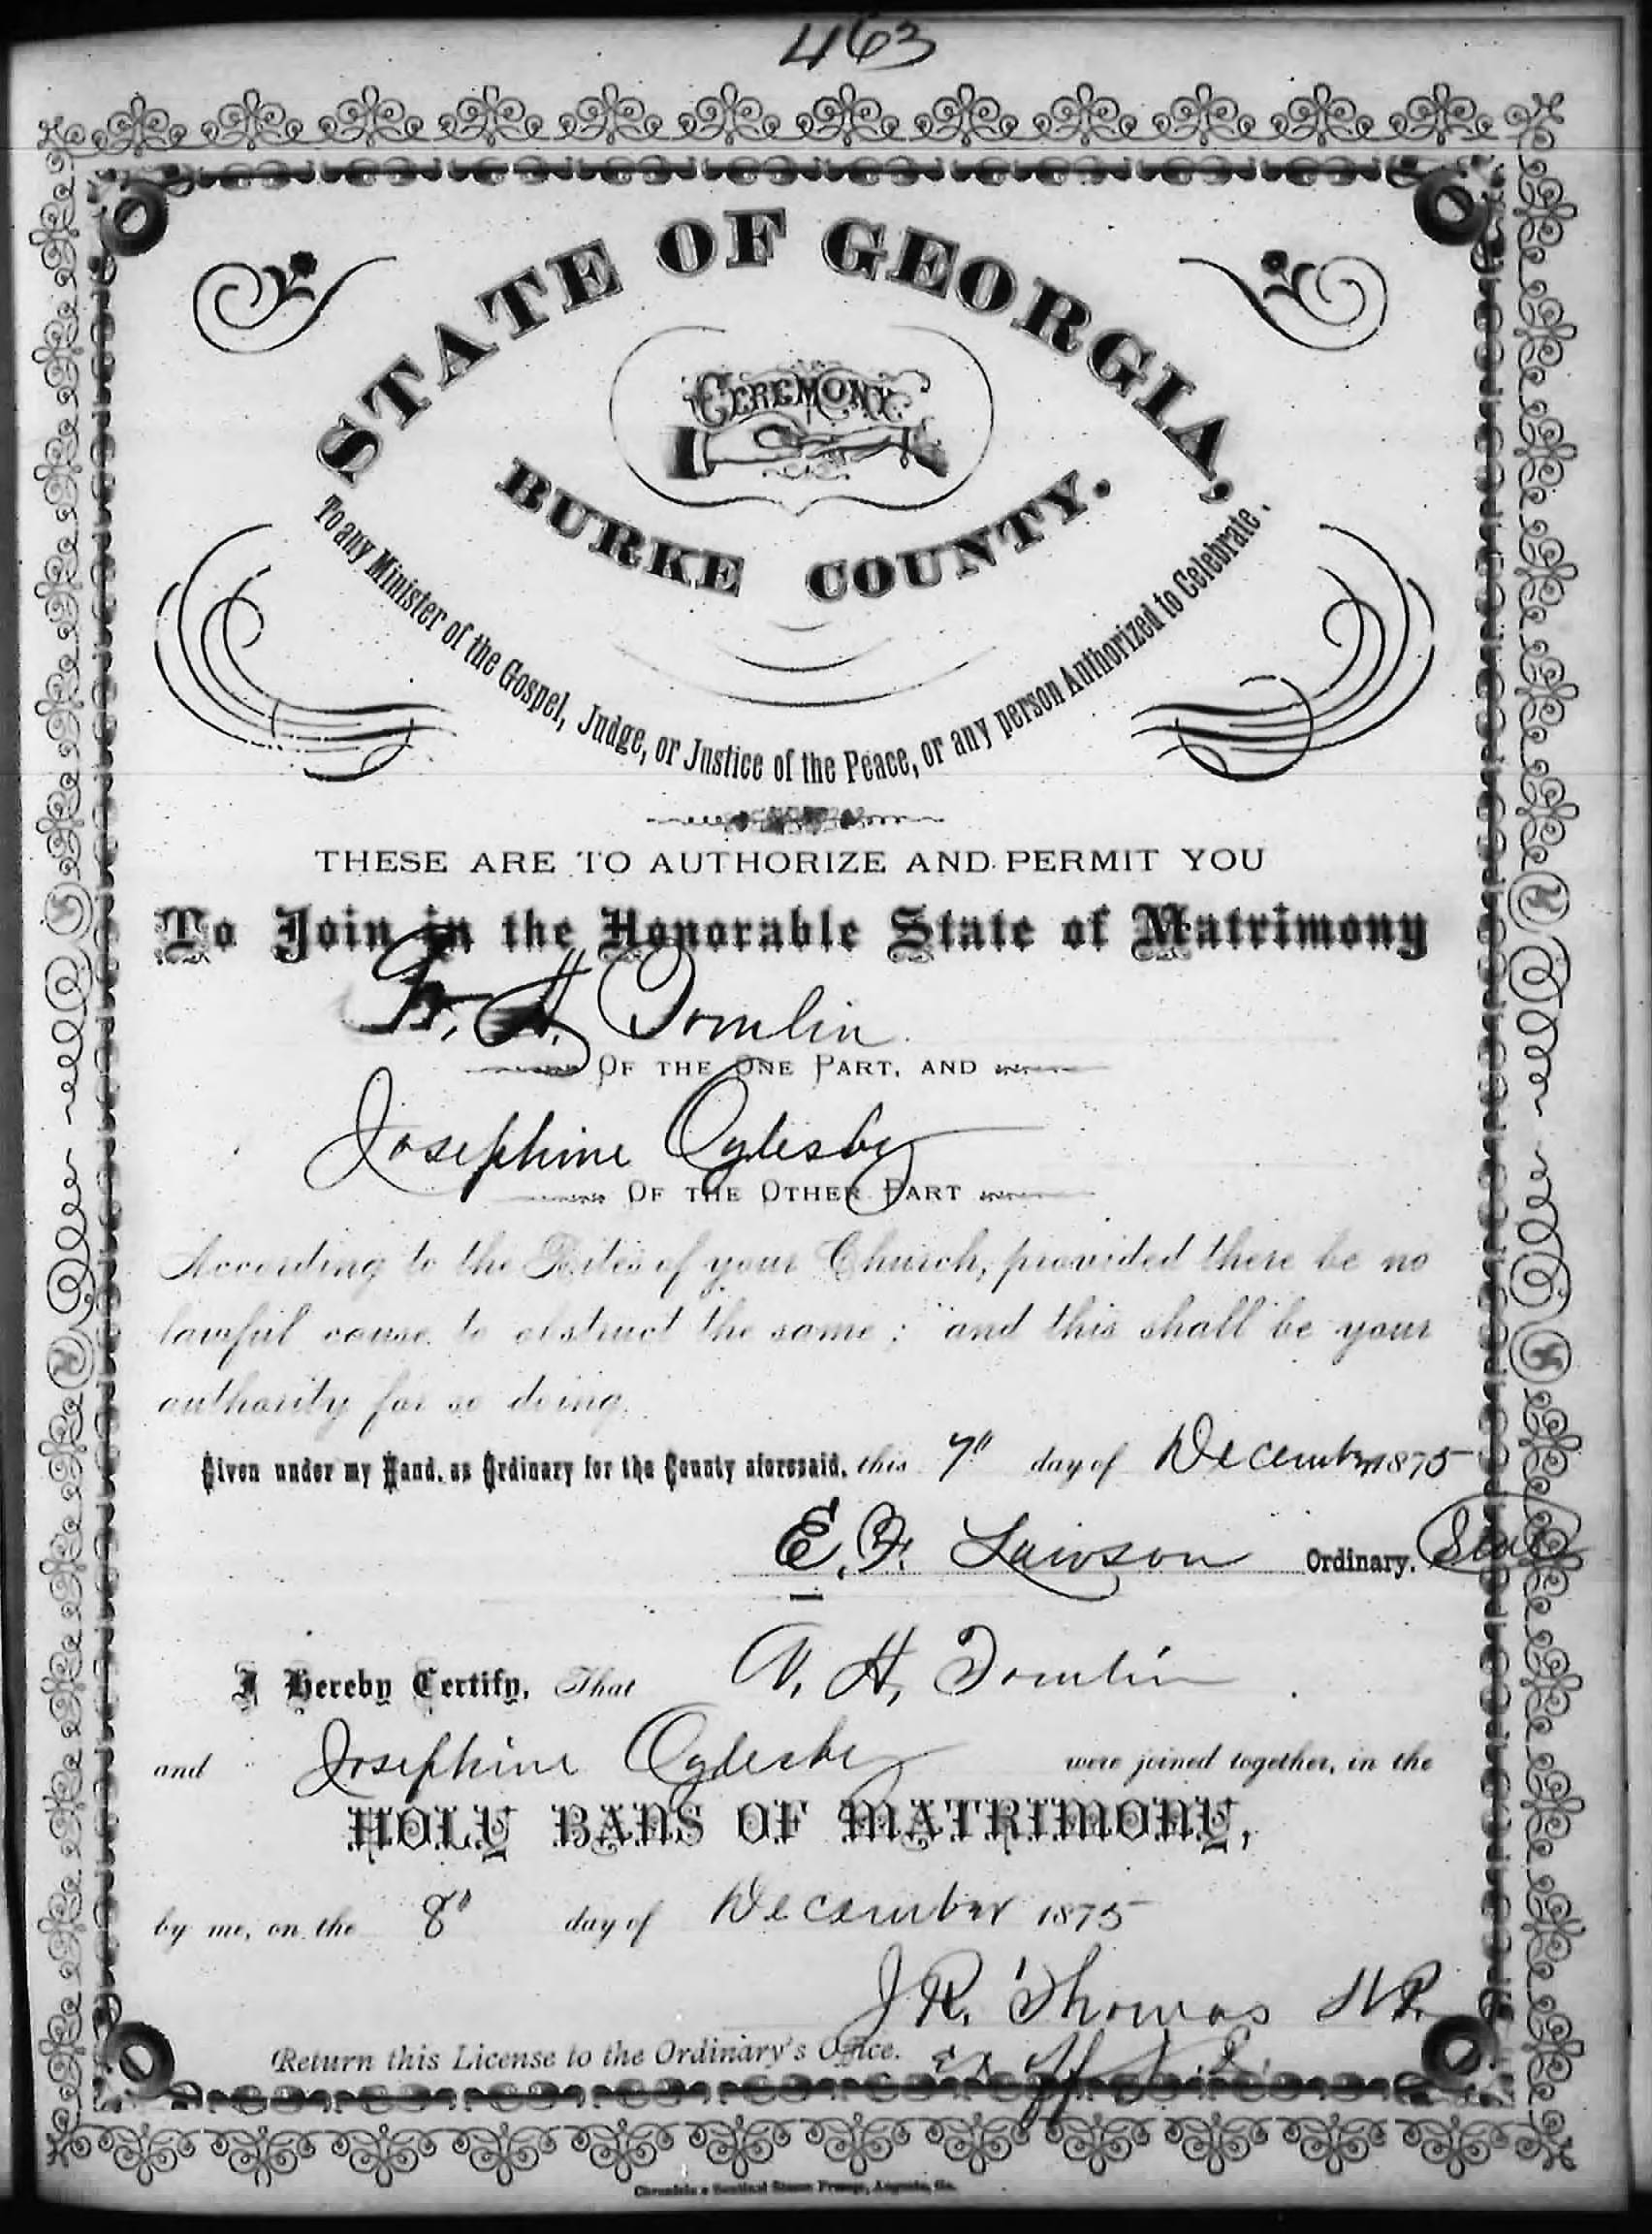 463
STATE OF GEORGIA,
CEREMONY
BURKE COUNTY.
To any Minister of the Gospel, Judge, or Justice of the Peace, or any person Authorized to Celebrate.
THESE ARE TO AUTHORIZE AND PERMIT YOU
To Join in the Honorable State of Matrimony
H. Tomlin
OF THE ONE PART, AND
Josephine Oglesby
OF THE OTHER PART
According to the Rites of your Church, provided there be no
lawful cause to obstruct the same; and this shall be your
authority for so doing.
Given under my Hand, as Ordinary for the County aforesaid, this 7" day of December 1875
E. F. Lawson Ordinary. Seal
I Hereby Certify, That H. Tomlin
and Josephine Oglesby were joined together, in the
HOLY BANS OF MATRIMONY,
by me, on the 8" day of December 1875
J. R. Thomas N.P.
Return this License to the Ordinary's Office. ex off J. P.
Chronicle & Sentinel Steam Presses, Augusta, Ga.